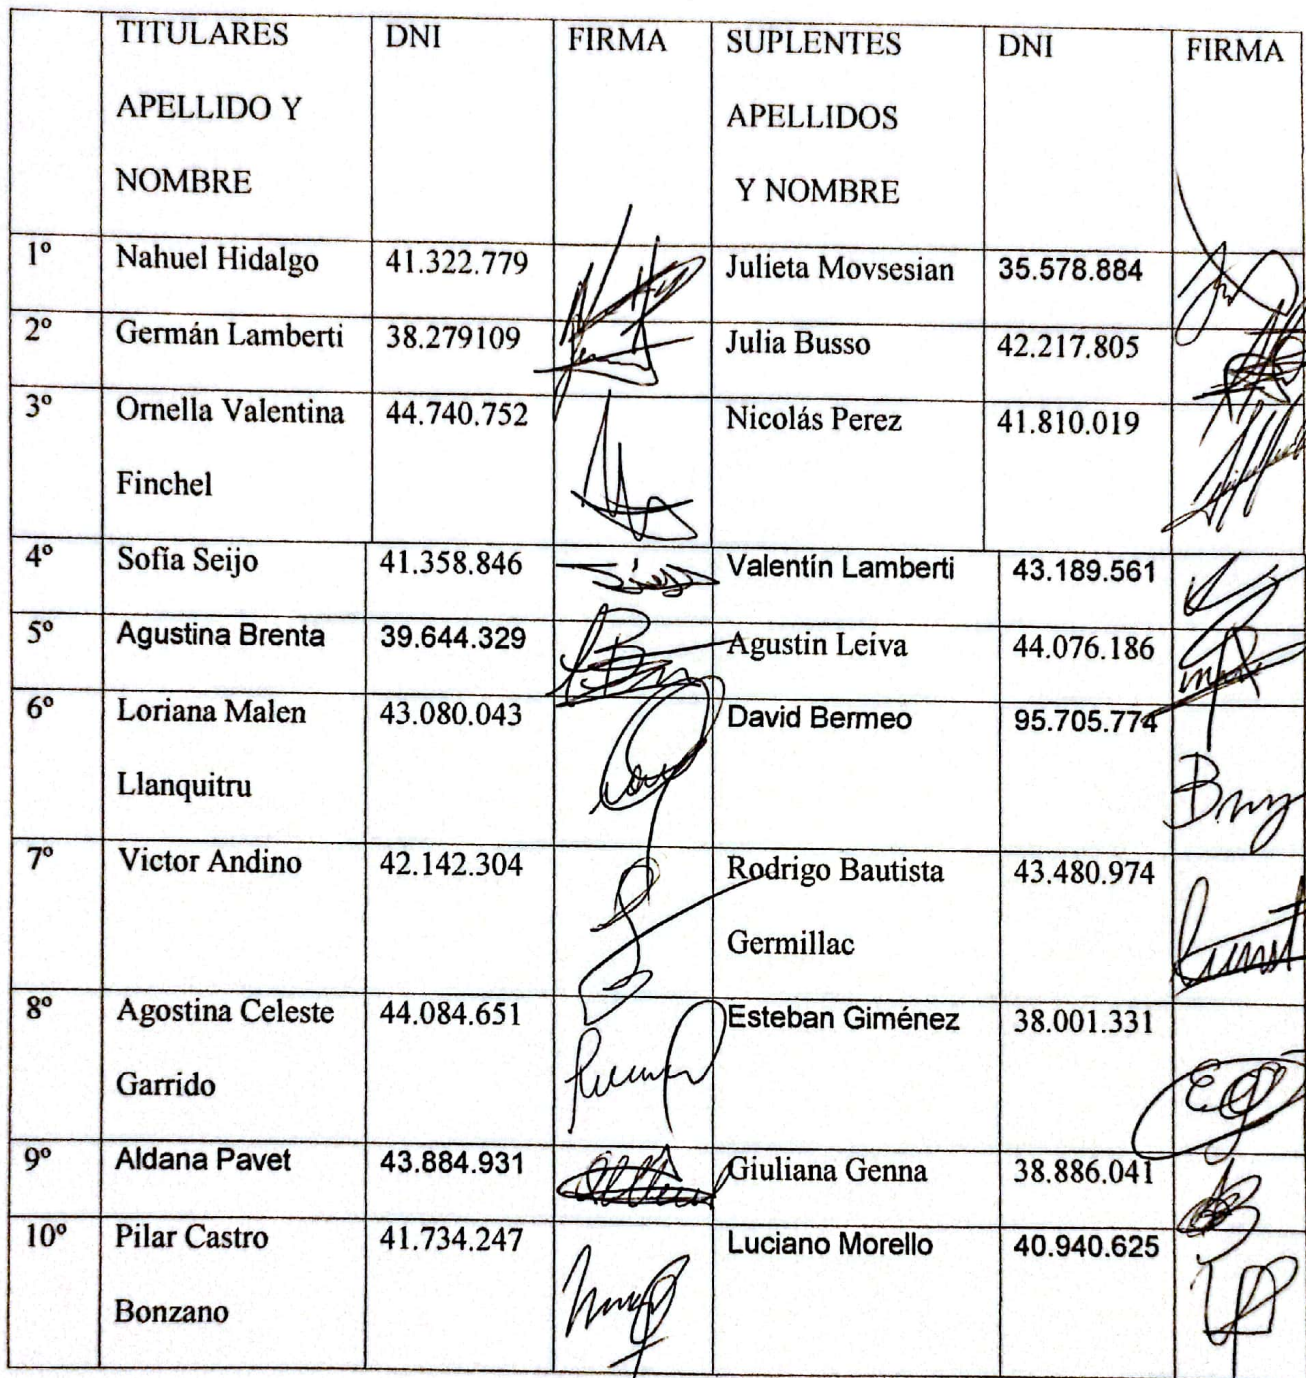 TITULARES DNI FIRMA SUPLENTES DNI FIRMA
APELLIDO Y APELLIDOS
NOMBRE Y NOMBRE
1º Nahuel Hidalgo 41.322.779 Julieta Movsesian 35.578.884
2º Germán Lamberti 38.279109 Julia Busso 42.217.805
3º Ornella Valentina 44.740.752 Nicolás Perez 41.810.019
Finchel
4º Sofía Seijo 41.358.846 Valentín Lamberti 43.189.561
5º Agustina Brenta 39.644.329 Agustin Leiva 44.076.186
6º Loriana Malen 43.080.043 David Bermeo 95.705.774
Llanquitru
7º Victor Andino 42.142.304 Rodrigo Bautista 43.480.974
Germillac
8º Agostina Celeste 44.084.651 Esteban Giménez 38.001.331
Garrido
9º Aldana Pavet 43.884.931 Giuliana Genna 38.886.041
10º Pilar Castro 41.734.247 Luciano Morello 40.940.625
Bonzano